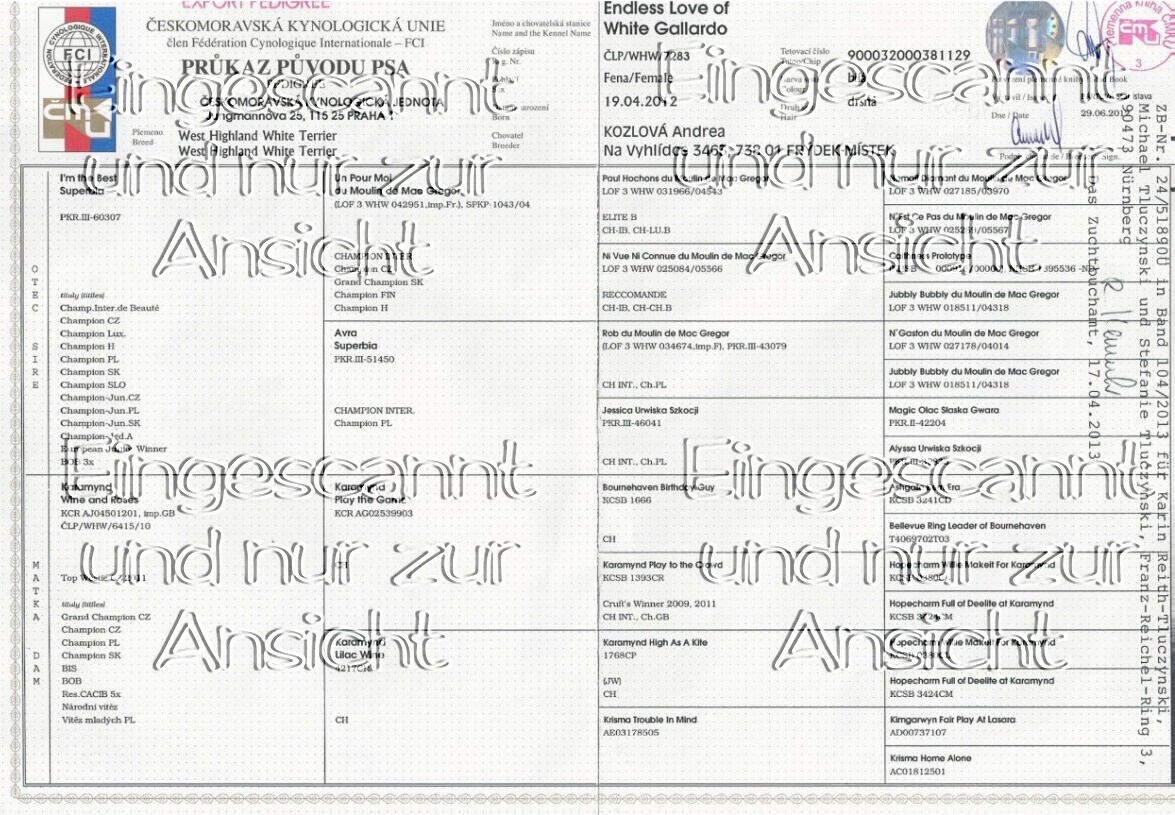 EXPORT PEDIGREE
ČESKOMORAVSKÁ KYNOLOGICKÁ UNIE
člen Fédération Cynologique Internationale – FCI
PRŮKAZ PŮVODU PSA
PEDIGREE
ČESKOMORAVSKÁ KYNOLOGICKÁ JEDNOTA
Jungmannova 25, 115 25 PRAHA
FCI
Plemeno
Breed
West Highland White Terrier
West Highland White Terrier
Jméno a chovatelská stanice
Name and the Kennel Name
Číslo zápisu
Born
Chovatel
Breeder
Endless Love of
White Gallardo
ČLP/WHW/7283
Fena/Female
19.04.2012
KOZLOVÁ Andrea
Na Vyhlídce 3465, 738 01 FRÝDEK-MÍSTEK
Tetovací číslo
900032000381129
bílá
Hair
drsná
Dne / Date
29.06.2012
ZB-Nr. 24/51890Ü in Band 104/2013 für Karin Reith-Tluczynski,
Michael Tluczynski und Stefanie Tluczynski, Franz-Reichel-Ring 3,
90473 Nürnberg
Das Zuchtbuchamt, 17.04.2013
Eingescannt
und nur zur
Ansicht
Eingescannt
und nur zur
Ansicht
Eingescannt
und nur zur
Ansicht
Eingescannt
und nur zur
Ansicht
OTEC SIRE
I'm the Best
Superbia
PKR.III-60307
tituly (titles)
Champ.Inter.de Beauté
Champion CZ
Champion Lux.
Champion H
Champion PL
Champion SK
Champion SLO
Champion-Jun.CZ
Champion-Jun.PL
Champion-Jun.SK
Champion-Jed.A
European Junior Winner
BOB 3x
MATKA DAM
Karamynd
Wine and Roses
KCR AJ04501201, imp.GB
ČLP/WHW/6415/10
Top Westie CZ 2011
tituly (titles)
Grand Champion CZ
Champion CZ
Champion PL
Champion SK
BIS
BOB
Res.CACIB 5x
Národní vítěz
Vítěz mladých PL
Un Pour Moi
du Moulin de Mac Gregor
(LOF 3 WHW 042951,imp.Fr.), SPKP-1043/04
CHAMPION INTER
Champion CZ
Grand Champion SK
Champion FIN
Champion H
Avra
Superbia
PKR.III-51450
CHAMPION INTER.
Champion PL
Karamynd
Play the Game
KCR AG02539903
CH
Karamynd
Lilac Wine
CH
Paul Hochons du Moulin de Mac Gregor
LOF 3 WHW 031966/04543
ELITE B
CH-IB, CH-LU.B
Ni Vue Ni Connue du Moulin de Mac Gregor
LOF 3 WHW 025084/05566
RECCOMANDE
CH-IB, CH-CH.B
Rob du Moulin de Mac Gregor
(LOF 3 WHW 034674,imp.F), PKR.III-43079
CH INT., Ch.PL
Jessica Urwiska Szkocji
PKR.III-46041
CH INT., Ch.PL
Bournehaven Birthday Guy
KCSB 1666
CH
Karamynd Play to the Crowd
KCSB 1393CR
Cruft's Winner 2009, 2011
CH INT., Ch.GB
Karamynd High As A Kite
1768CP
(JW)
CH
Krisma Trouble In Mind
AE03178505
Diamant du Moulin de Mac Gregor
LOF 3 WHW 027185/03970
N'Est Ce Pas du Moulin de Mac Gregor
Caithness Prototype
Jubbly Bubbly du Moulin de Mac Gregor
LOF 3 WHW 018511/04318
N'Gaston du Moulin de Mac Gregor
LOF 3 WHW 027178/04014
Jubbly Bubbly du Moulin de Mac Gregor
LOF 3 WHW 018511/04318
Magic Olac Slaska Gwara
PKR.II-42204
Alyssa Urwiska Szkocji
Era
KCSB 3241CD
Bellevue Ring Leader of Bournehaven
T4069702T03
Hopecharm Willie Makeit For Karamynd
Hopecharm Full of Deelite at Karamynd
Hopecharm Willie Makeit For Karamynd
Hopecharm Full of Deelite at Karamynd
KCSB 3424CM
Kimgarwyn Fair Play At Lasara
AD00737107
Krisma Home Alone
AC01812501